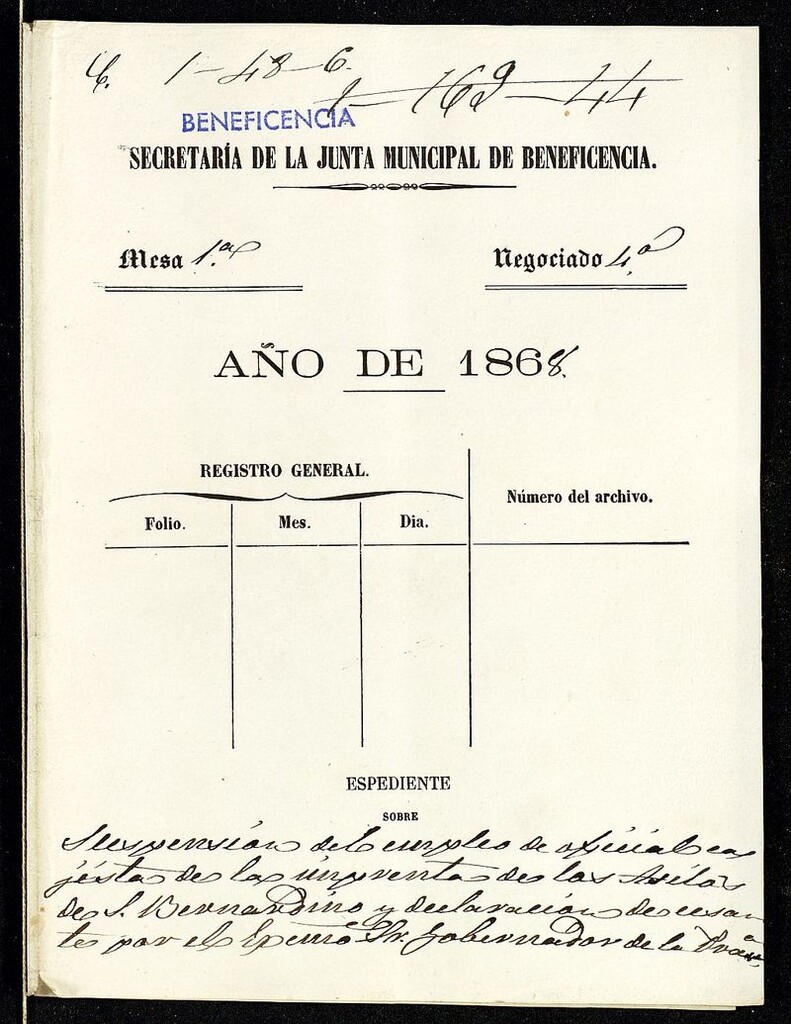 C. 1-48-6.
1-169-44
BENEFICENCIA
SECRETARÍA DE LA JUNTA MUNICIPAL DE BENEFICENCIA.
Mesa 1.ª Negociado 4.º
AÑO DE 1868.
REGISTRO GENERAL.
Número del archivo.
Folio. Mes. Dia.
ESPEDIENTE
SOBRE
Suspensión del empleo de oficial ca
jista de la imprenta de los Asilos
de S. Bernardino y declaracion de cesan
te por el Excmo Sr. Gobernador de la